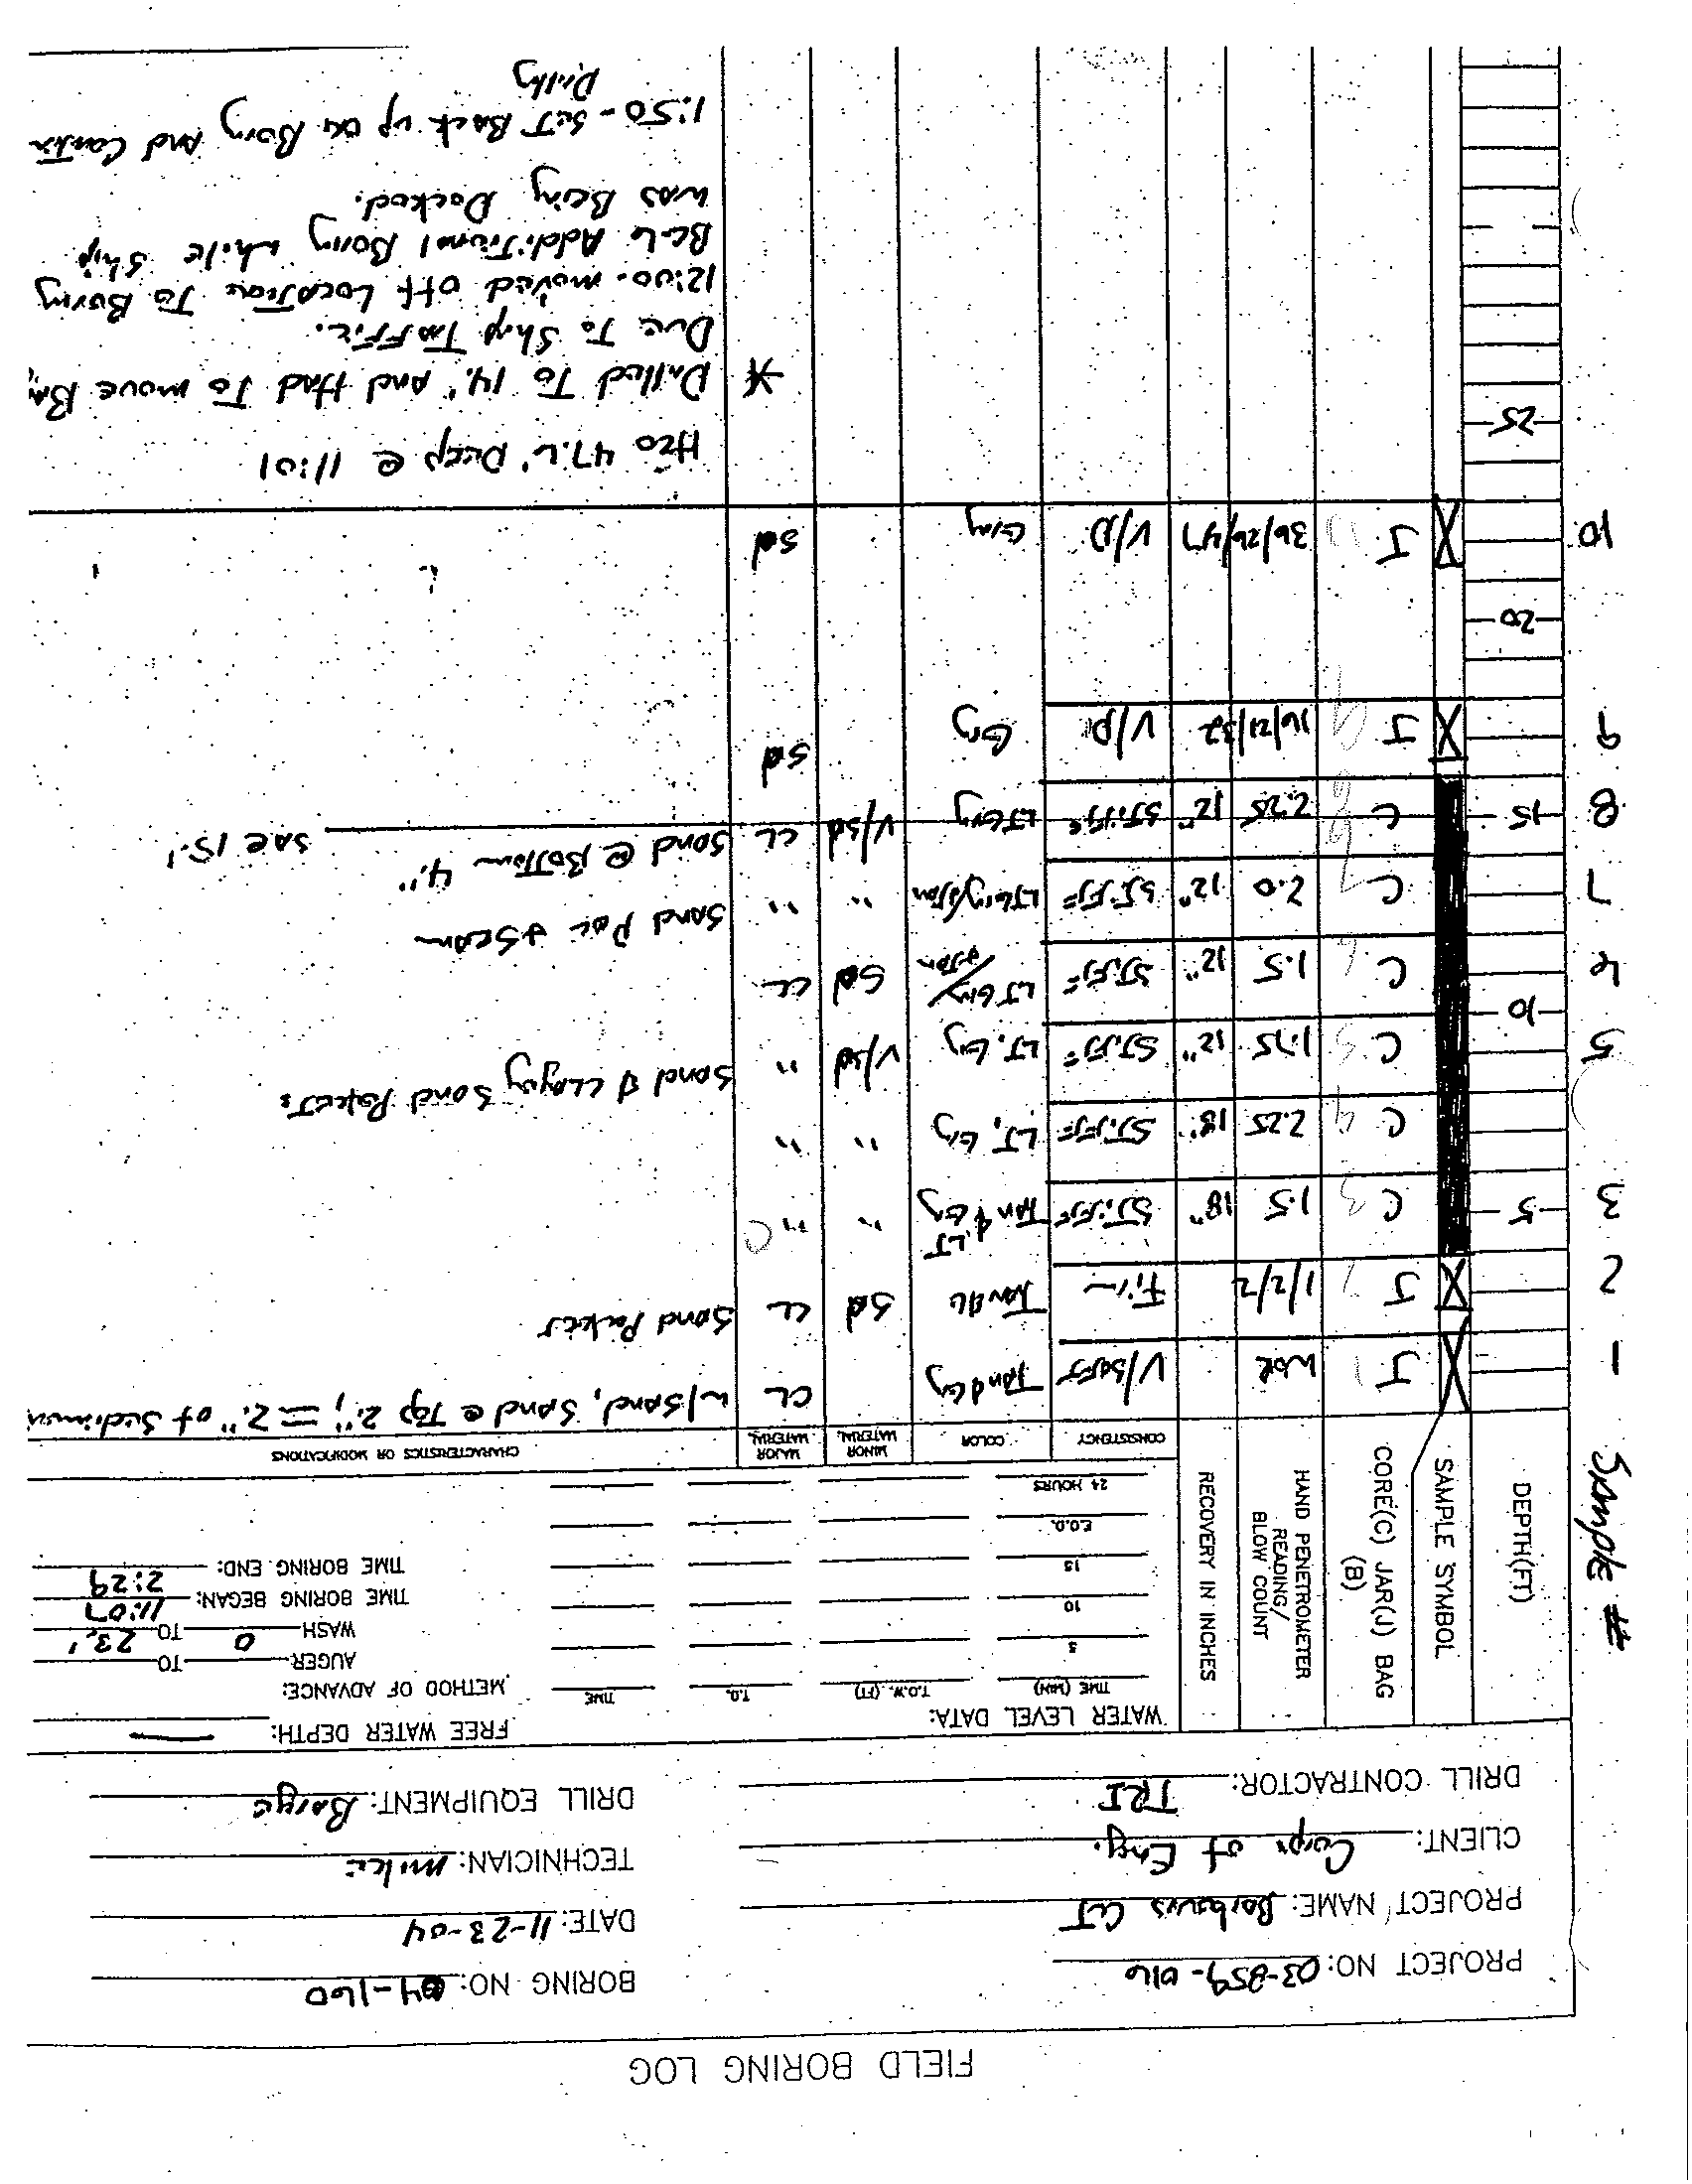 FIELD BORING LOG
PROJECT NO: 03-859-016 BORING NO: 04-160
PROJECT NAME: Barbours CT DATE: 11-23-04
CLIENT: Corps of Eng. TECHNICIAN: mike
DRILL CONTRACTOR: TRI DRILL EQUIPMENT: Barge
Sample #
DEPTH(FT)
SAMPLE SYMBOL
CORE(C) JAR(J) BAG (B)
HAND PENETROMETER READING/ BLOW COUNT
RECOVERY IN INCHES
WATER LEVEL DATA: FREE WATER DEPTH: —
TIME (MIN) T.O.W. (FT) T.D. TIME METHOD OF ADVANCE:
5 AUGER: TO
10 WASH 0 TO 23.'
15 TIME BORING BEGAN: 11:07
E.O.D. TIME BORING END: 2:29
24 HOURS
CONSISTENCY COLOR MINOR MATERIAL MAJOR MATERIAL CHARACTERISTICS OR MODIFICATIONS
1 J WOR V/SOFT Tan & Gry CL w/SAND, SAND @ Top 2."; = 2." of Sedimen
2 J 1/2/2 Firm Tan & Sd CL Sand Pockets
3 5 C 1.5 18" STIFF LT Tan & Gry " "
C 2.25 18" STIFF LT. Gry " "
5 C 1.75 12" STIFF LT. Gry V/sd " Sand & Clayey Sand Pockets
10
6 C 1.5 12" STIFF LT Gry/ & Tan Sd CL
7 C 2.0 12" STIFF LT Gry/& Tan " " Sand Poc & Seam
8 15 C 2.25 12" STIFF LT Gry V/sd CL Sand @ Bottom 4." Sa @ 15.'
9 J 16/21/32 V/D Gry Sd
20
10 J 36/26/47 V/D Gray Sd
H2O 47.6' Deep @ 11:01
25
* Drilled To 14.' And Had To move
Due To Ship Traffic.
12:00 - moved off Location To Boring
Additional Boring while Ship
was Being Docked.
1:50 - Set Back up on Boring And
Drilling